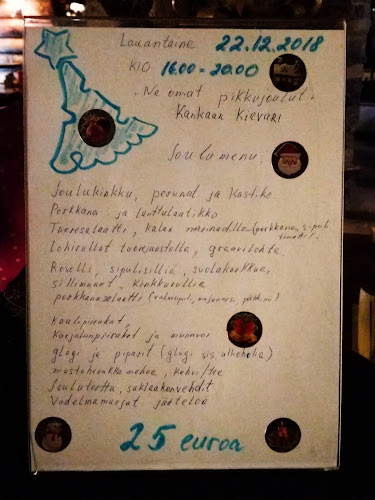 Lauantaina 22.12.2018
KLO 16.00-20.00
"Ne omat pikkujoulut"
Kankaan Kievari
Joulumenu
Joulukinkku, perunat ja kastike
Porkkana ja lanttulaatikko
Tuoresalaatti, kalaa marinadilla (porkkana, sipuli
tomaatti).
Lohirullat tuorejuustolla, graavilohta
Rosolli, sipulisilliä, suolakurkkua,
sillimunat, kinkkurullia
porkkanasalaatti (valkosipuli, majoneesi,
Kaalipiirakat,
Karjalanpiirakat ja munavoi
glögi ja piparit (glögi sis. alkoholia)
mustaherukka mehua, kahvi/tee
Joulutorttu, suklaakonvehdit
Vadelmamarjat jäätelöä
25 euroa